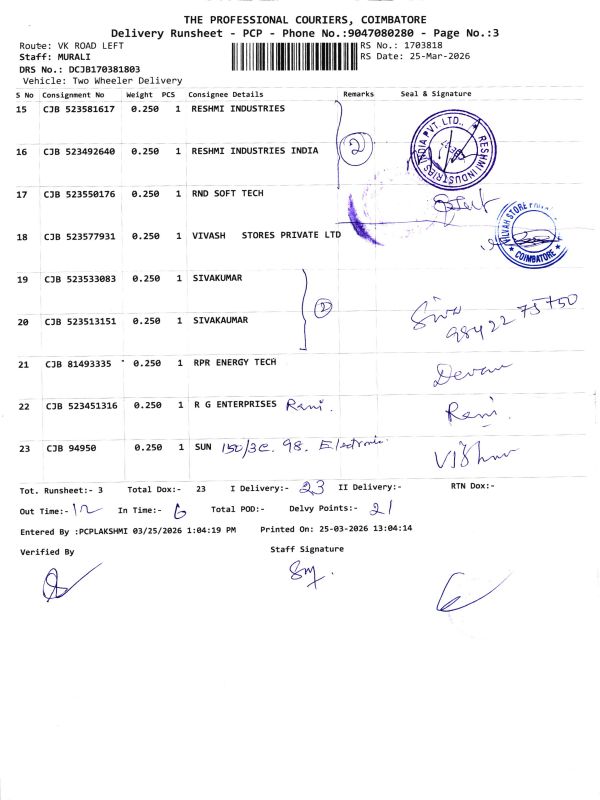 THE PROFESSIONAL COURIERS, COIMBATORE
Delivery Runsheet - PCP - Phone No.:9047080280 - Page No.:3
Route: VK ROAD LEFT RS No.: 1703818
Staff: MURALI RS Date: 25-Mar-2026
DRS No.: DCJB170381803
Vehicle: Two Wheeler Delivery
S No Consignment No Weight PCS Consignee Details Remarks Seal & Signature
15 CJB 523581617 0.250 1 RESHMI INDUSTRIES
RESHMI INDUSTRIAS INDIA PVT LTD.,
16 CJB 523492640 0.250 1 RESHMI INDUSTRIES INDIA 2
17 CJB 523550176 0.250 1 RND SOFT TECH
18 CJB 523577931 0.250 1 VIVASH STORES PRIVATE LTD
COIMBATORE
19 CJB 523533083 0.250 1 SIVAKUMAR
2
20 CJB 523513151 0.250 1 SIVAKAUMAR Siva
98422 75750
21 CJB 81493335 0.250 1 RPR ENERGY TECH Devan
22 CJB 523451316 0.250 1 R G ENTERPRISES Rani. Rani.
23 CJB 94950 0.250 1 SUN 150/3C. 98. Electronic Vishnu
Tot. Runsheet:- 3 Total Dox:- 23 I Delivery:- 23 II Delivery:- RTN Dox:-
Out Time:- 12 In Time:- 6 Total POD:- Delvy Points:- 21
Entered By :PCPLAKSHMI 03/25/2026 1:04:19 PM Printed On: 25-03-2026 13:04:14
Verified By Staff Signature